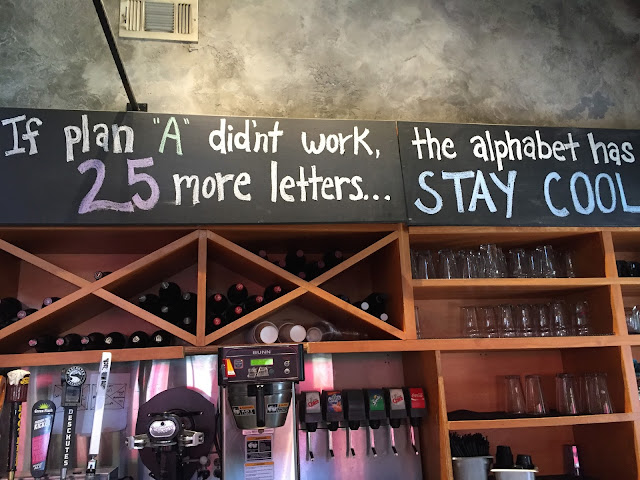 If plan "A" did'nt work, the alphabet has
25 more letters... STAY COOL
BUNN
DESCHUTES